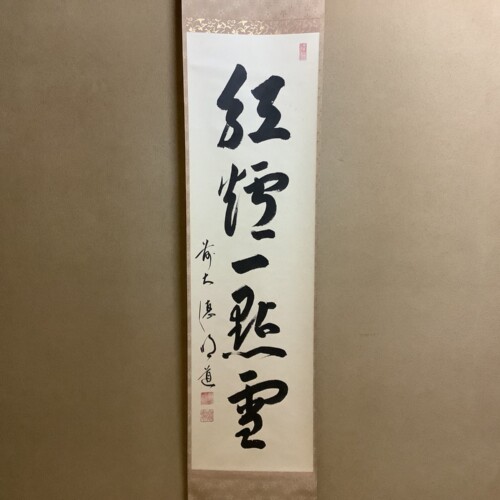 紅爐一點雪
前大徳明道